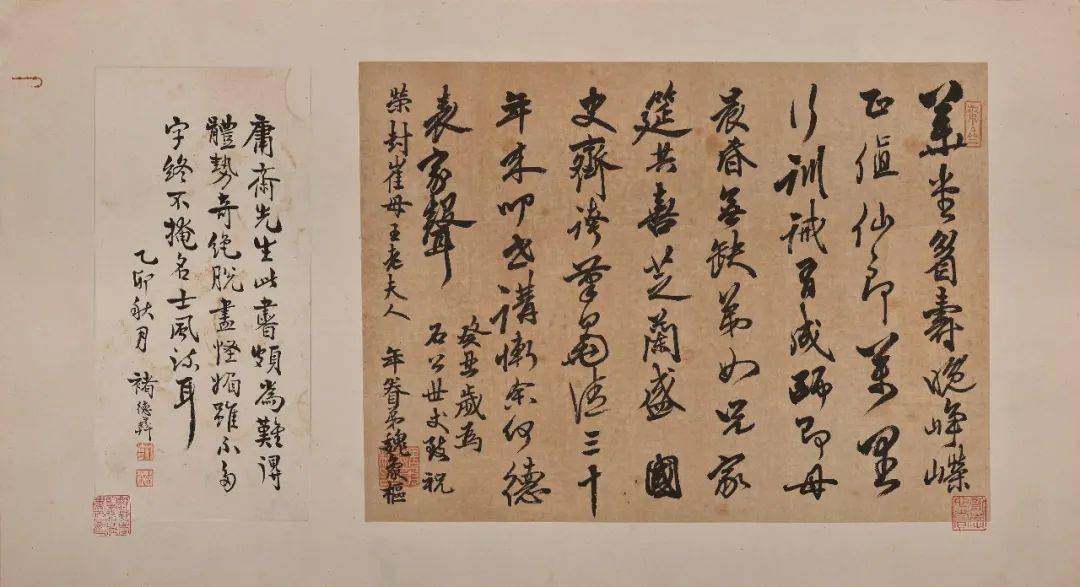 萱堂眉壽晚崢嶸
正值仙郎萬里
行訓誡習成師即母
晨昏無缺弟如兄家
筵共喜芝蘭盛國
史齊誇筆清三十
年來叨世講慚余何德
表家聲
癸丑歲爲
石公世丈致祝
榮封崔母王老夫人
年眷弟魏象樞
庸齋先生此書頗爲難得
體勢奇絕脫盡怪媚雖不多
字終不掩名士風流耳
乙卯秋月 褚德彝